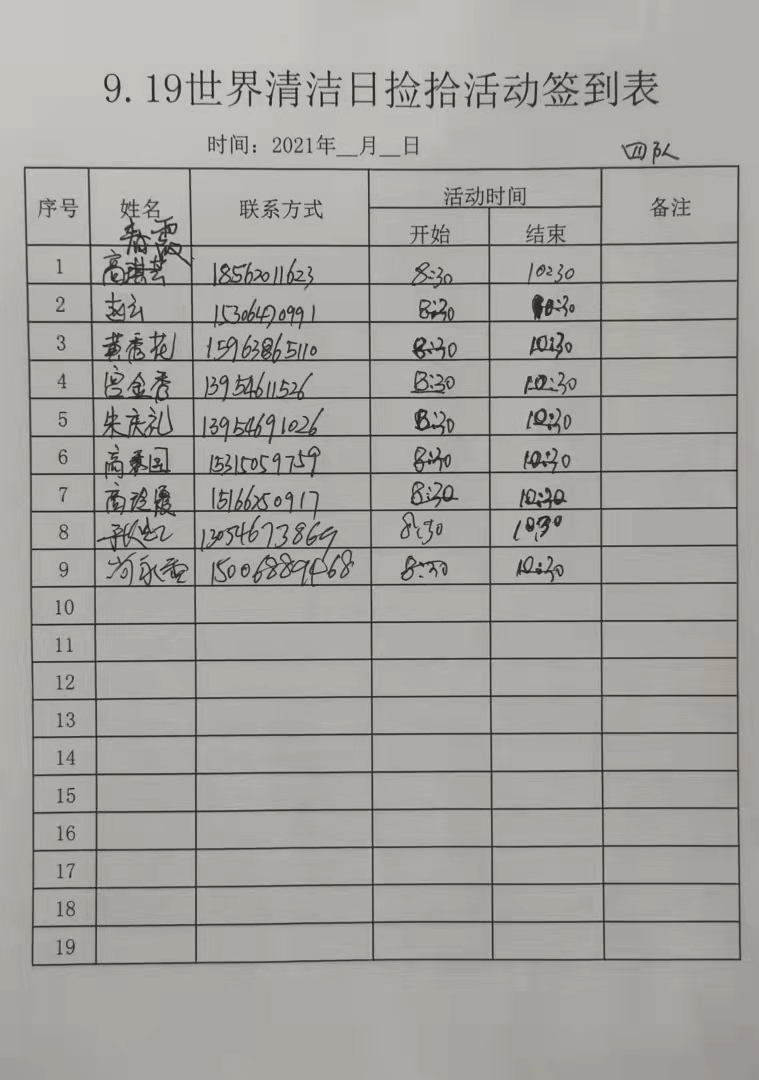 9.19世界清洁日捡拾活动签到表
时间：2021年__月__日
四队
序号 姓名 联系方式 活动时间 备注
开始 结束
春霞
1 高琪芸 18562011623 8:30 10:30
2 赵云 15306470991 8:30 10:30
3 黄秀花 15963865110 8:30 10:30
4 宫金秀 13954611526 8:30 10:30
5 朱庆礼 13954691026 8:30 10:30
6 高秉国 15315059759 8:30 10:30
7 高玲霞 15166250917 8:30 10:30
8 13054673869 8:30 10:30
9 15006889468 8:30 10:30
10
11
12
13
14
15
16
17
18
19